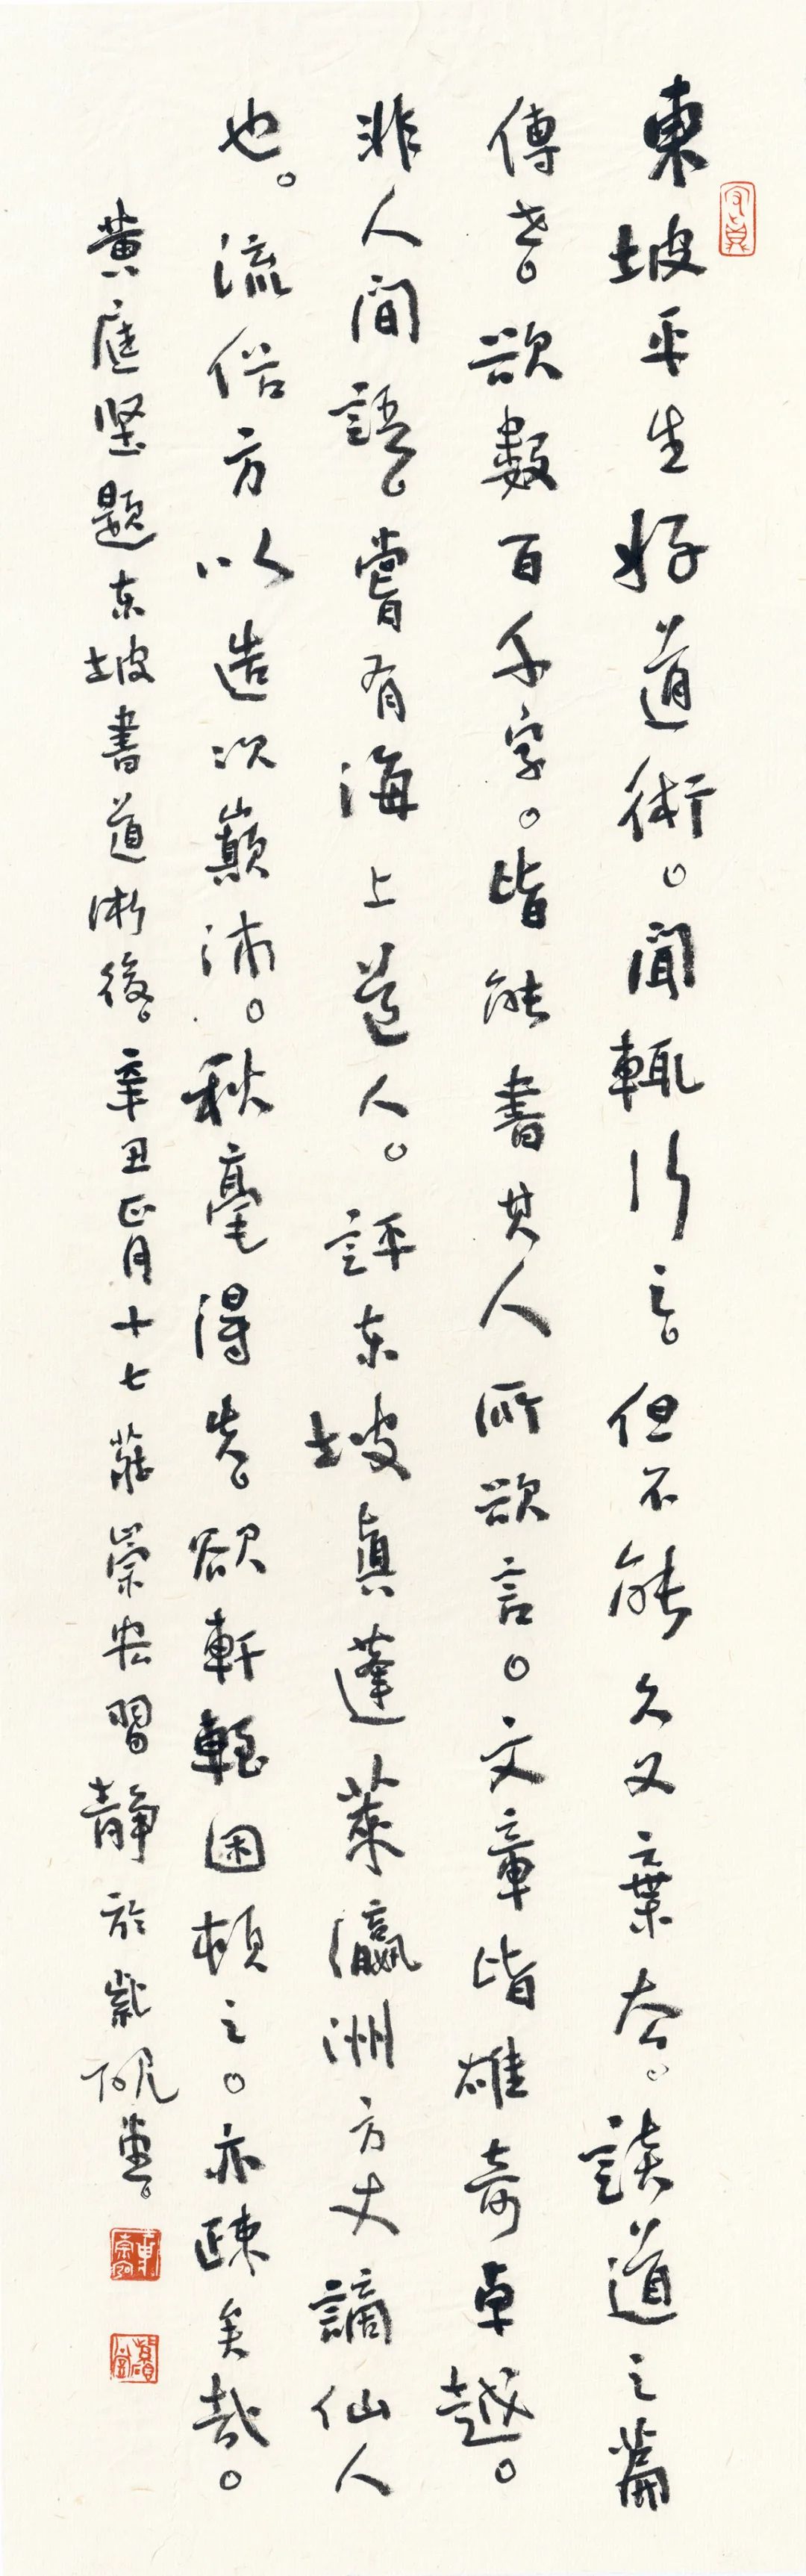 東坡平生好道術。聞輒行之。但不能久又棄去。談道之篇
傳世。欲數百千字。皆能書其人所欲言。文章皆雄奇卓越。
非人間語。嘗有海上道人。評东坡真蓬萊瀛洲方丈謫仙人
也。流俗方以造次巔沛。秋毫得失。欲軒輊困頓之。亦疎矣哉。
黄庭堅題东坡書道術後。辛丑正月十七崇習静於紫硯堂。